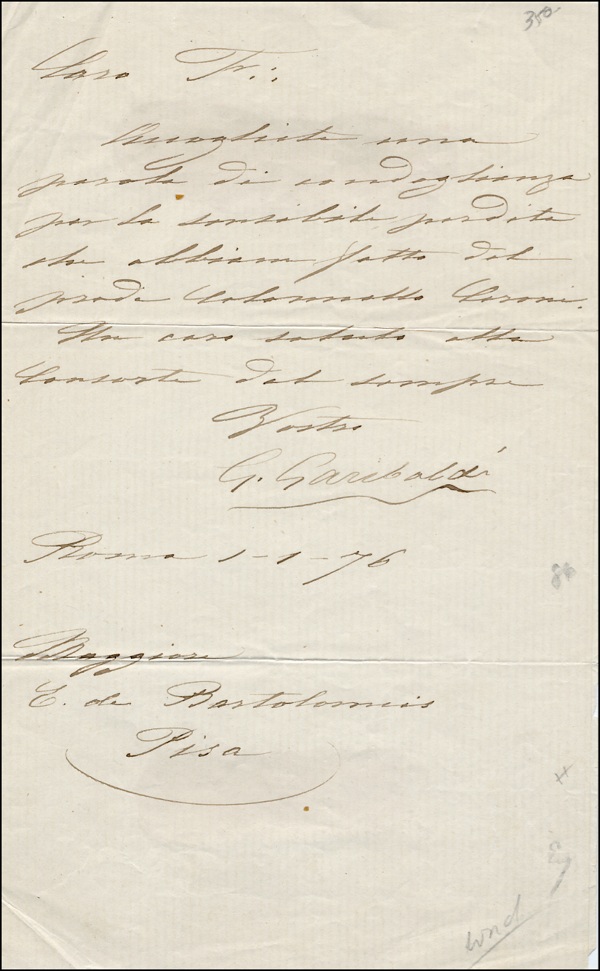 350
Caro Fr∴
Accogliete una
parola di condoglianza
per la sensibile perdita
che abbiam fatto del
prode Colonnello
Un caro saluto alla
Consorte dal sempre
Vostro
G. Garibaldi
Roma 1-1-76
Maggiore
E. de Bartolomeis
Pisa